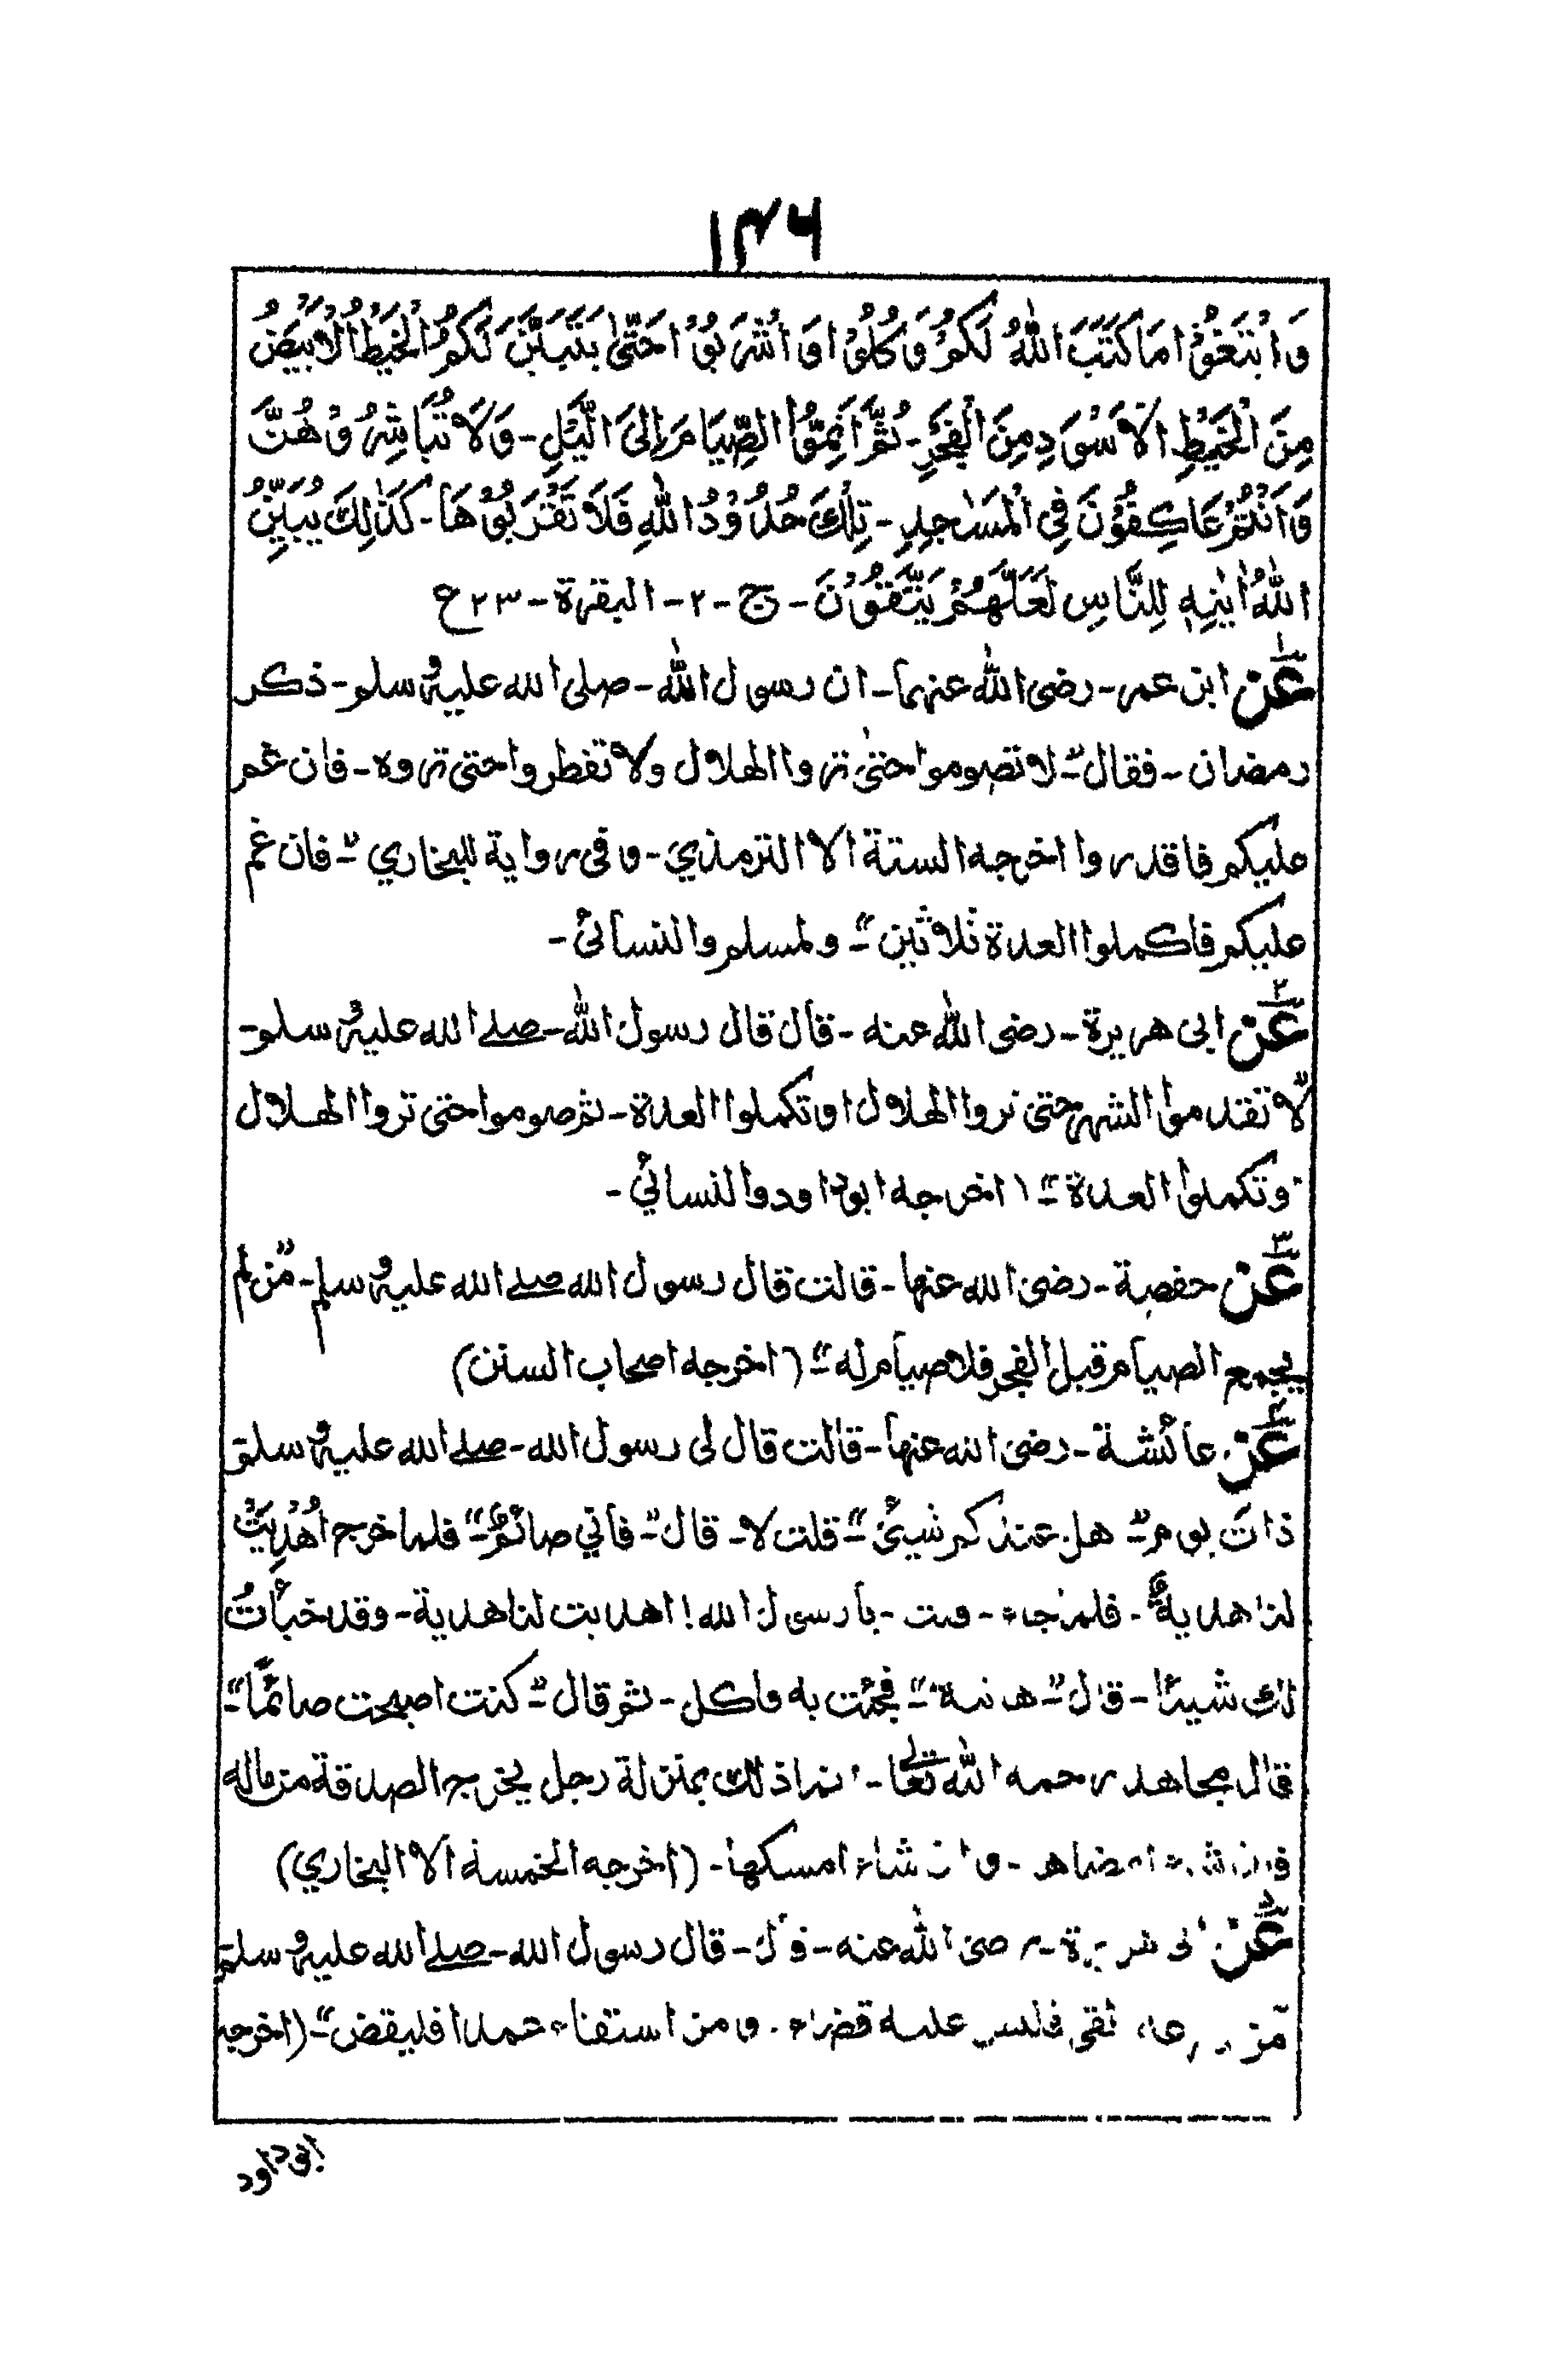 ۱۴۶
وَابْتَغُوْا مَا كَتَبَ اللّٰهُ لَكُمْ وَكُلُوْا وَاشْرَبُوْا حَتّٰى يَتَبَيَّنَ لَكُمُ الْخَيْطُ الْاَبْيَضُ
مِنَ الْخَيْطِ الْاَسْوَدِ مِنَ الْفَجْرِ - ثُمَّ اَتِمُّوا الصِّيَامَ اِلَى الَّيْلِ - وَلَا تُبَاشِرُوْهُنَّ
وَاَنْتُمْ عَاكِفُوْنَ فِي الْمَسٰجِدِ - تِلْكَ حُدُوْدُ اللّٰهِ فَلَا تَقْرَبُوْهَا - كَذٰلِكَ يُبَيِّنُ
اللّٰهُ اٰيٰتِهٖ لِلنَّاسِ لَعَلَّهُمْ يَتَّقُوْنَ - ج - ۲ - البقرة - ۲۳ ع
۱ عن ابن عمر - رضى اللّٰه عنهما - ان رسول اللّٰه - صلى الله عليه وسلم - ذكر
رمضان - فقال "- لا تصوموا حتىٰ تروا الهلال ولا تفطروا حتى تروه - فان غم
عليكم فاقدروا اخرجه الستة الا الترمذي - وفى رواية للبخاري "- فان غم
عليكم فاكملوا العدة ثلاثين "- ولمسلم والنسائى -
۲ عن ابى هريرة - رضى اللّٰه عنه - قال قال رسول اللّٰه - صلے الله عليه وسلم -
"لا تقدموا الشهر حتى تروا الهلال او تكملوا العدة - ثم صوموا حتى تروا الهلال
وتكملوا العدة "- ( اخرجه ابو داود والنسائي -
۳ عن حفصة - رضى الله عنها - قالت قال رسول الله صلے الله عليه وسلم - "من لم
يجمع الصيام قبل الفجر فلا صيام له "- (اخرجه اصحاب السنن)
۴ عن عائشة - رضى الله عنها - قالت قال لى رسول الله - صلے الله عليه وسلم
ذات يوم "- هل عندكم شيئ "- قلت لا - قال "- فأني صائم "- فلما خرج اُهْدِيَتْ
لنا هدية - فلما جاء - قلت - يا رسول الله! اهديت لنا هدية - وقد خبأتُ
لك شيئا - قال "- هاتيه "- فجئت به فاكل - ثم قال "- كنت اصبحت صائمًا "-
قال مجاهد رحمه اللّٰه تعالى - انما ذلك بمنزلة رجل يخرج الصدقة من ماله
فان شاء امضاها - وان شاء امسكها - (اخرجه الخمسة الا البخاري)
۵ عن ابى هريرة - رضى اللّٰه عنه - قال - قال رسول الله - صلے الله عليه وسلم
"من ذرعه القى فليس عليه قضاء - ومن استقاء عمدا فليقض "- (اخرجه
ابو داود